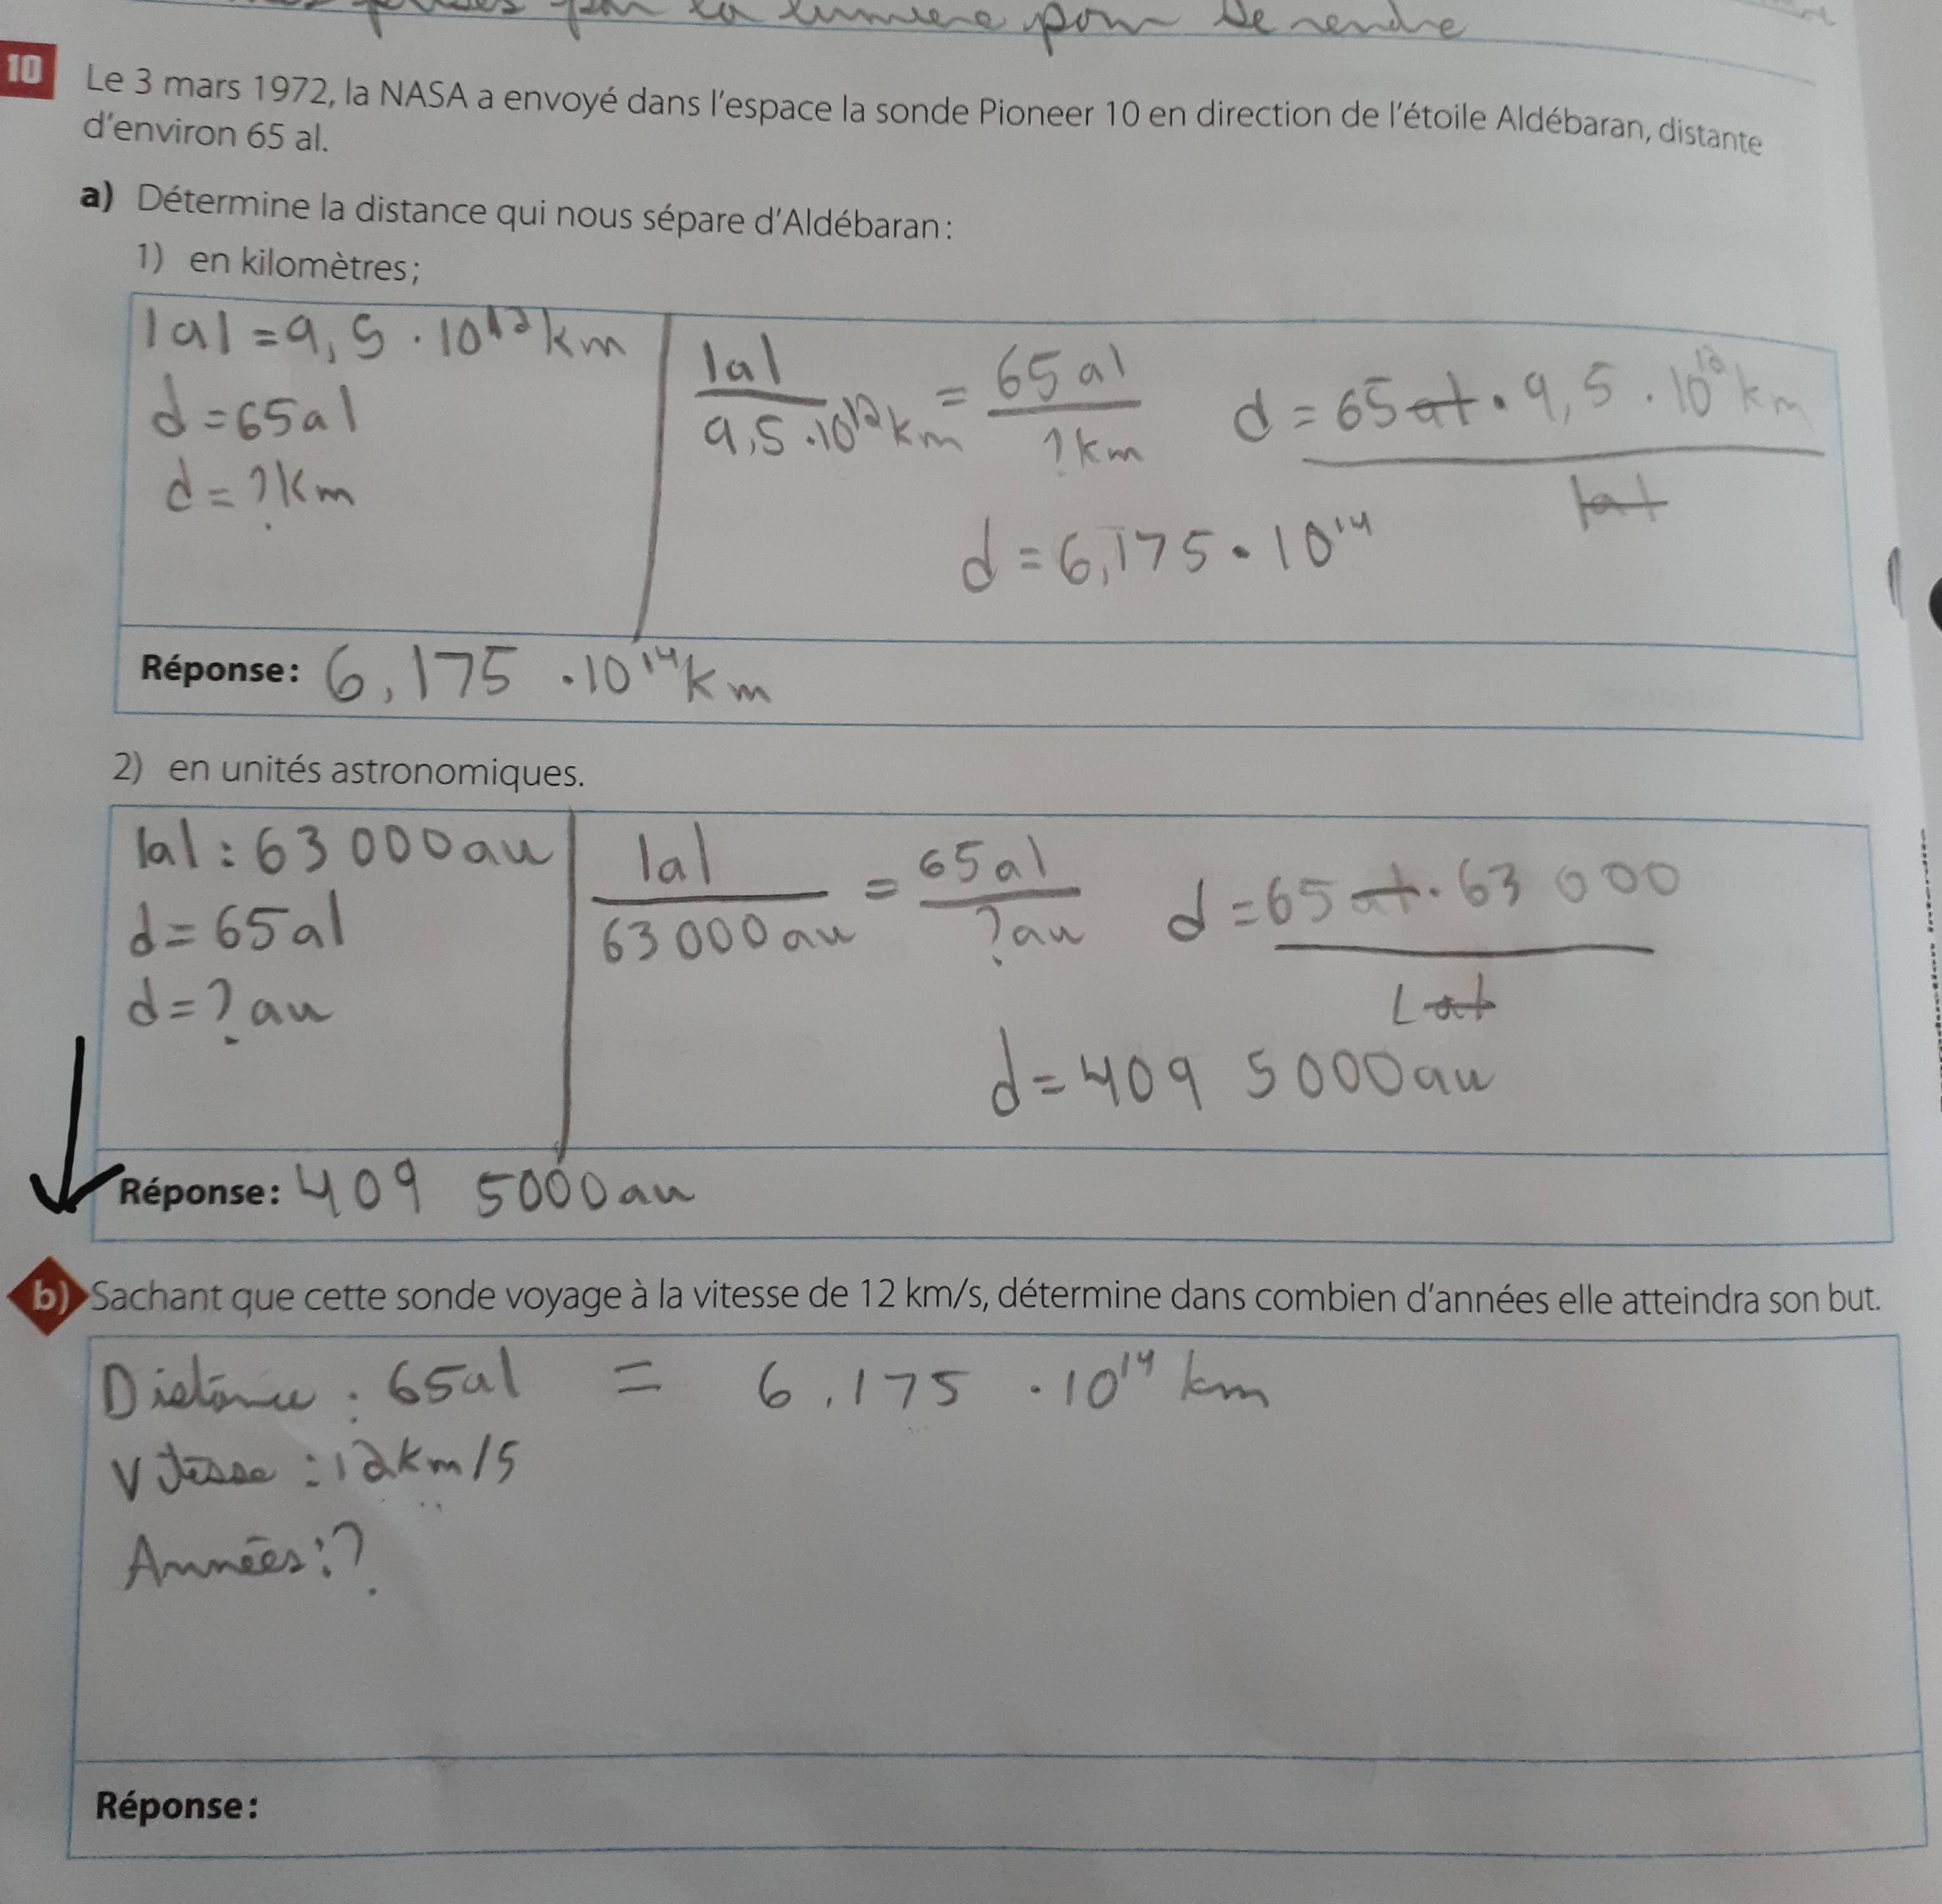 par la lumière pour se rendre
10 Le 3 mars 1972, la NASA a envoyé dans l'espace la sonde Pioneer 10 en direction de l'étoile Aldébaran, distante
d'environ 65 al.
a) Détermine la distance qui nous sépare d'Aldébaran :
1) en kilomètres;
1al = 9,5 · 10¹² km
d = 65al
d = ? km
1al / 9,5 · 10¹² km = 65 al / ? km
d = 65 al · 9,5 · 10¹² km / 1al
d = 6,175 · 10¹⁴
Réponse : 6,175 · 10¹⁴ km
2) en unités astronomiques.
1al : 63 000 au
d = 65al
d = ? au
1al / 63 000 au = 65al / ? au
d = 65 al · 63 000 / 1 al
d = 409 5000 au
Réponse : 409 5000 au
b) Sachant que cette sonde voyage à la vitesse de 12 km/s, détermine dans combien d'années elle atteindra son but.
Distance : 65al = 6,175 · 10¹⁴ km
Vitesse : 12km/s
Années : ?
Réponse :